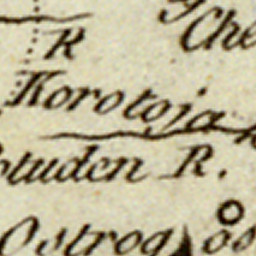 Che
R
Korotoja
otuden R.
Ostrog os